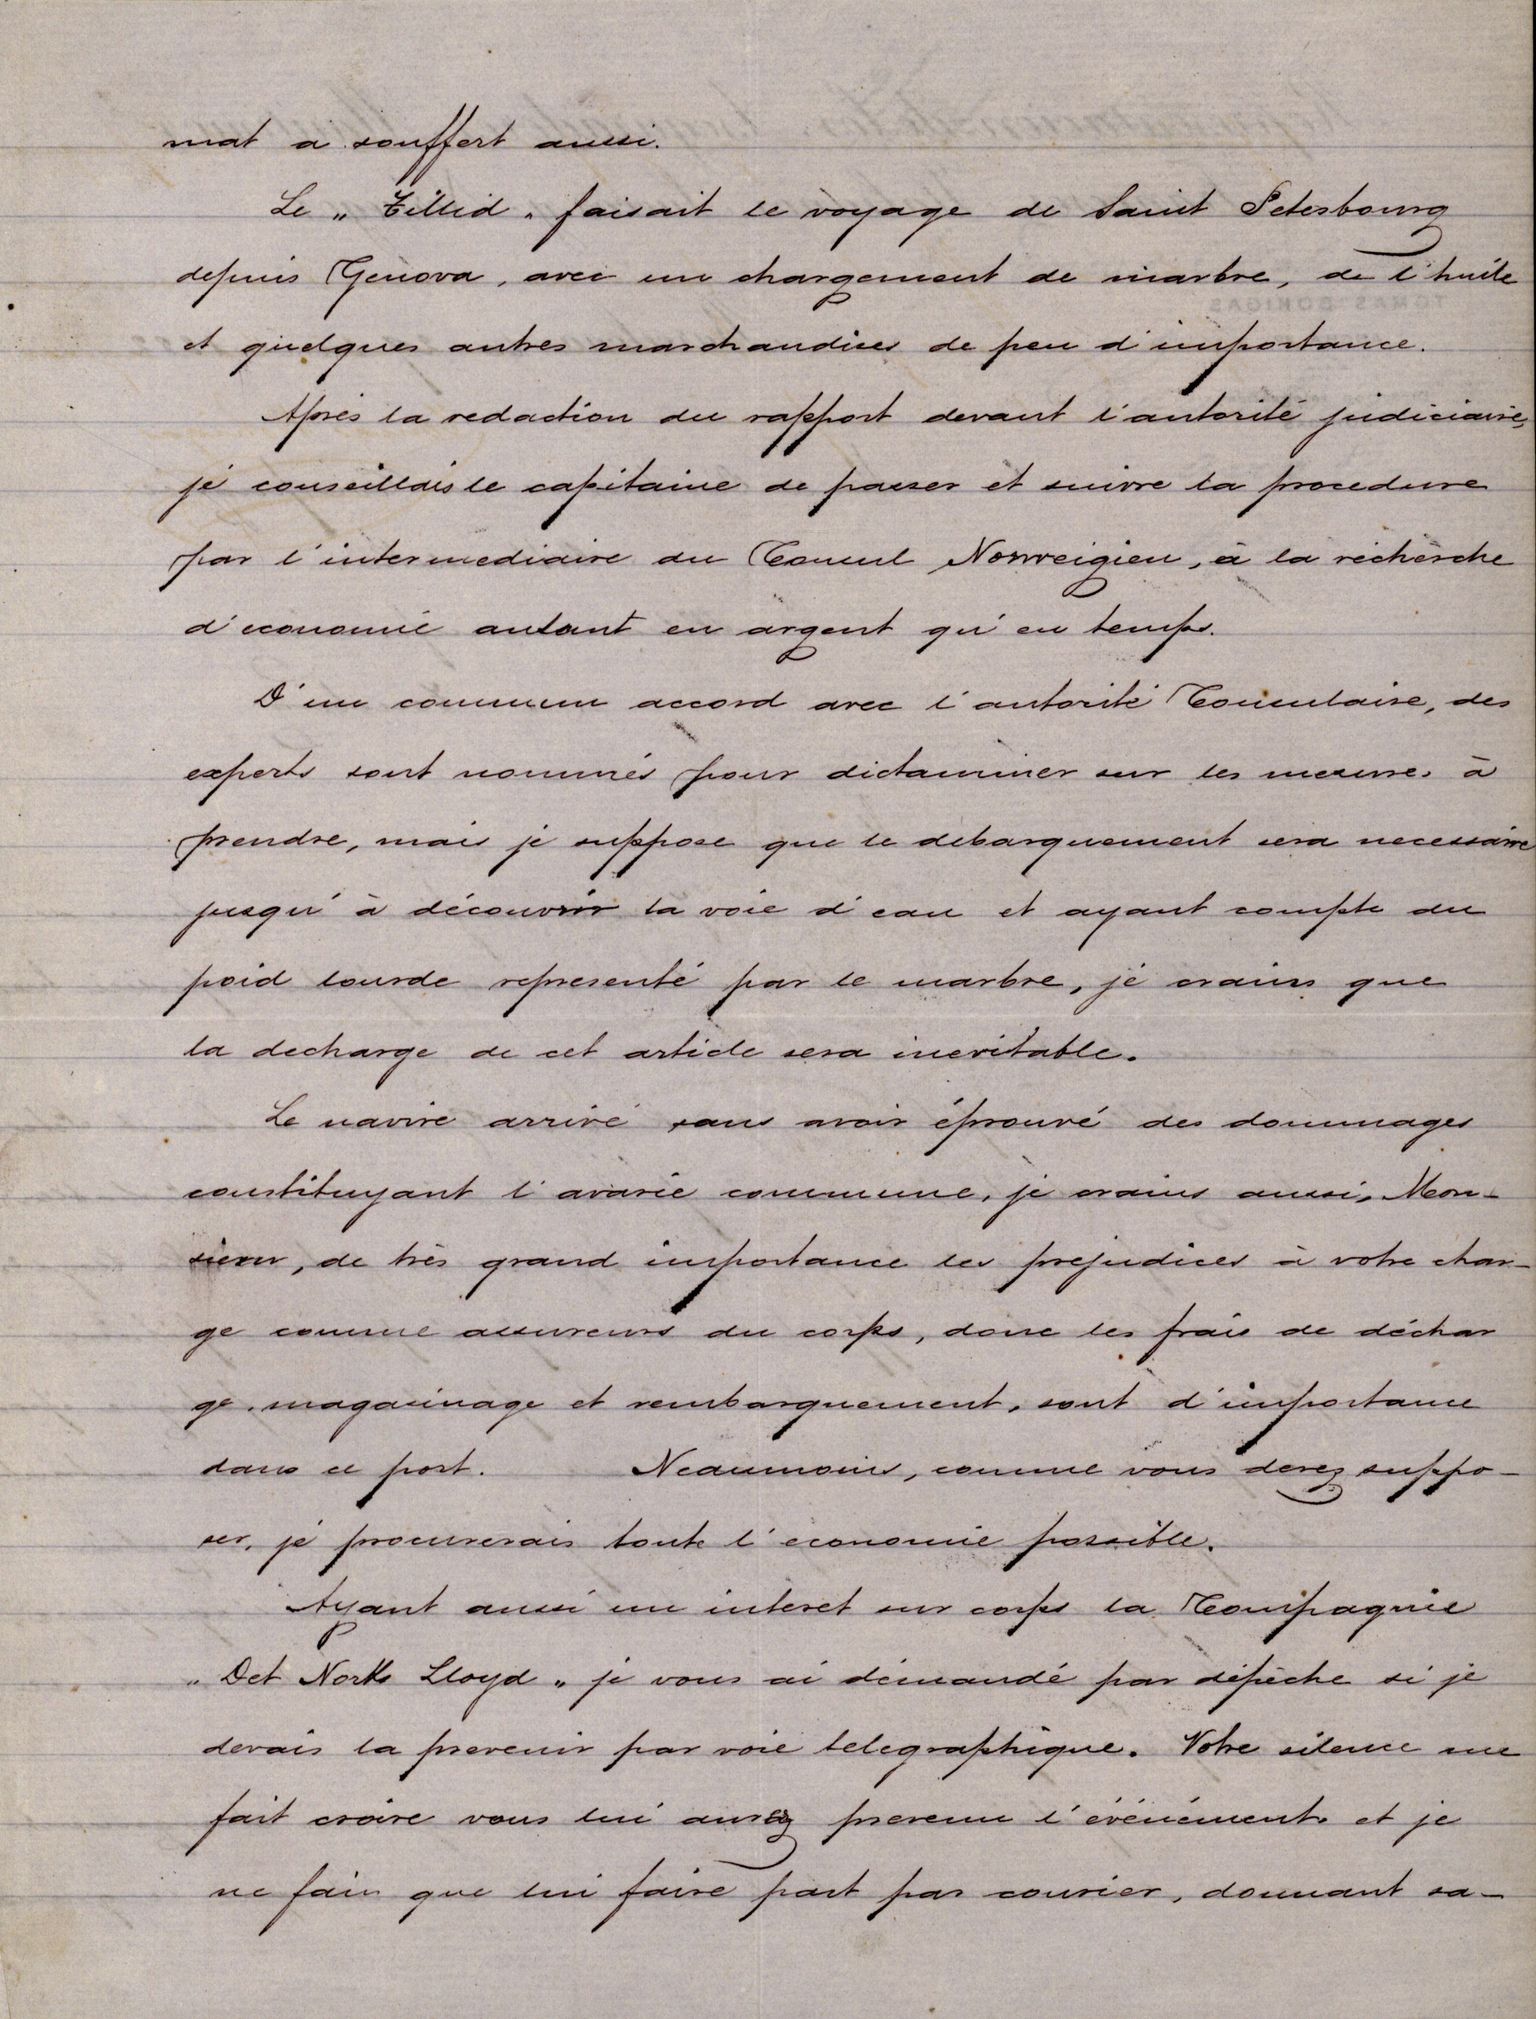 mat a souffert aussi.
Le „ Tillid „ faisait le voyage de Saint Petesbourg
depuis Genova, avec un chargement de marbre, de l'huile
et quelques autres marchandises de peu d'importance.
Après la redaction du rapport devant l'autorité judiciaire,
je conseillais le capitaine de passer et suivre la procedure
par l'intermediaire du Consul Norweigien, à la recherche
d'economie autant en argent qu'en temps.
D'un commun accord avec l'autorité Consulaire, des
experts sont nommés pour dictaminer sur les mesures à
prendre, mais je suppose que le debarquement sera necessaire
jusqu'à découvrir la voie d'eau et ayant compte du
poid lourde representé par le marbre, je crains que
la decharge de cet article sera inevitable.
Le navire arrivé sans avoir éprouvé des dommages
constituyant l'avarie commune, je crains aussi, Mon-
sieur, de très grand importance les prejudices à votre char-
ge comme assureurs du corps, donc les frais de déchar
ge, magasinage et rembarquement, sont d'importance
dans ce port. Neaumoins, comme vous devez suppo-
ser, je procurerais toute l'economie possible.
Ayant aussi un interet sur corps la Compagnie
„ Det Norks Lloyd „ je vous ai démandé par dépêche si je
devais la prevenir par voie telegraphique. Votre silence me
fait croire vous lui aurez prevenu l'événements et je
ne fais que lui faire part par courier, donnant sa-